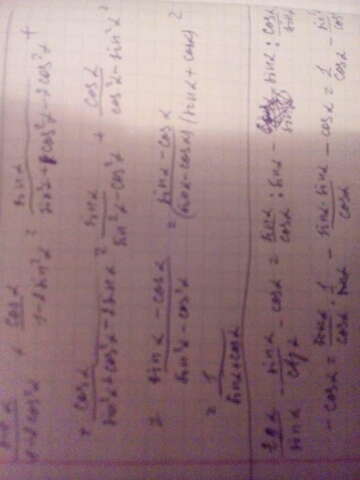 sinα/(1-2cos²α) + cosα/(1-2sin²α) = sinα/(sin²α+cos²α-2cos²α) +
+ cosα/(sin²α+cos²α-2sin²α) = sinα/(sin²α-cos²α) + cosα/(cos²α-sin²α) =
= (sinα-cosα)/(sin²α-cos²α) = (sinα-cosα)/((sinα-cosα)(sinα+cosα)) =
= 1/(sinα+cosα)
tgα/sinα - sinα/ctgα - cosα = sinα/cosα : sinα - sinα : cosα/sinα
- cosα = sinα/cosα · 1/sinα - sinα sinα/cosα - cosα = 1/cosα -